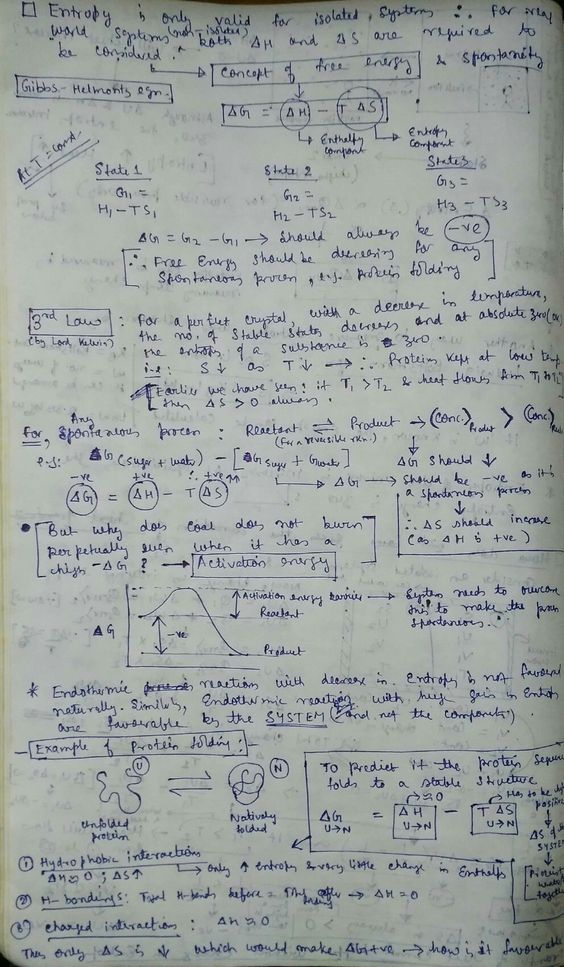 □ Entropy is only valid for isolated systems ∴ For real
world systems (non-isolated) both ΔH and ΔS are required to
be considered.
Concept of free energy & spontaneity
Gibbs-Helmontz eqn.
ΔG = ΔH - T ΔS
Enthalpy compont
Entropy component
At T = const.
State 1
State 2
State 3
G₁ =
G₂ =
G₃ =
H₁-TS₁
H₂-TS₂
H₃-TS₃
ΔG = G₂ - G₁ → should always be -ve
∴ Free Energy should be decreasing for any
spontaneous process, e.g. protein folding
3rd Law : For a perfect crystal, with a decrease in temperature,
(by Lord Kelvin) the no. of stable states decreases and at absolute zero
the entropy of a substance is zero.
i.e: S↓ as T↓ → ∴ Proteins kept at low temp
Earlier we have seen: if T₁ > T₂ & heat flows from T₁ to T₂
then ΔS > 0 always.
For, Any spontaneous process : Reactant ⇌ Product → (Conc.)Product > (Conc.)
(For a reversible rxn.)
e.g: ΔG (sugar + water) - [ΔG sugar + Gwater]
ΔG should ↓
→ ΔG → should be -ve as it's
a spontaneous process
-ve +ve +ve ↑↑
ΔG = ΔH - T ΔS
∴ ΔS should increase
(as ΔH is +ve)
• But why does coal does not burn
perpetually even when it has a
high -ΔG ? → Activation energy
Activation energy barrier → System needs to overcome
this to make the process
spontaneous.
Reactant
ΔG
-ve
Product
* Endothermic reaction with decrease in Entropy is not favoured
naturally. Similarly, Endothermic reaction with huge gain in Entropy
are favourable by the SYSTEM (and not the components)
Example of Protein folding:-
U
N
unfolded
protein
Natively
folded
To predict if the protein sequence
folds to a stable structure
≈0
Has to be
positive
ΔG U→N = ΔH U→N - T ΔS U→N
ΔS of the
SYSTEM
① Hydrophobic interactions
ΔH≈0 ; ΔS↑ → Only ↑ entropy & very little change in Enthalpy
② H-bondings: Total H-bonds before = after → ΔH = 0
③ charged interaction : ΔH ≈ 0
Thus only ΔS is ↓ which would make ΔG +ve → how is it favourable